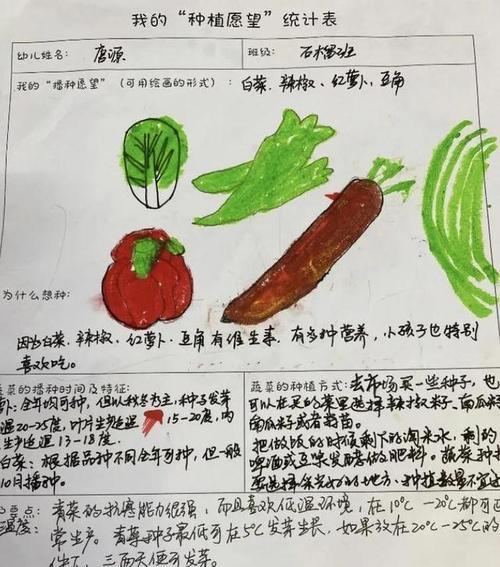 我的“种植愿望”统计表
幼儿姓名: 唐源 班级: 石榴班
我的“播种愿望”(可用绘画的形式): 白菜、辣椒、红萝卜、豆角
为什么想种:
因为白菜、辣椒、红萝卜、豆角有维生素、有多种营养,小孩子也特别
喜欢吃。
蔬菜的播种时间及特征:
卜:全年均可种,但以秋冬为主,种子发芽
温20-25度,叶片生长适温15-20度,肉
生长适温13-18度。
白菜:根据品种不同全年可种,但一般
10月播种。
蔬菜的种植方式: 去市场买一些种子,也
可以在买的菜里选择辣椒籽、南瓜籽
南瓜籽或者葫苗。
把做饭的时候剩下的淘米水,剩的
啤酒或豆浆发酵做肥料。蔬菜种
选择 的地方,种植数量不宜
青菜的抗寒能力很强,而且喜欢低温环境,在10℃-20℃都可正
温度: 常生产。青菜种子最低可在5℃发芽生长,如果放在20℃-25℃的
件下,三两天便可发芽。